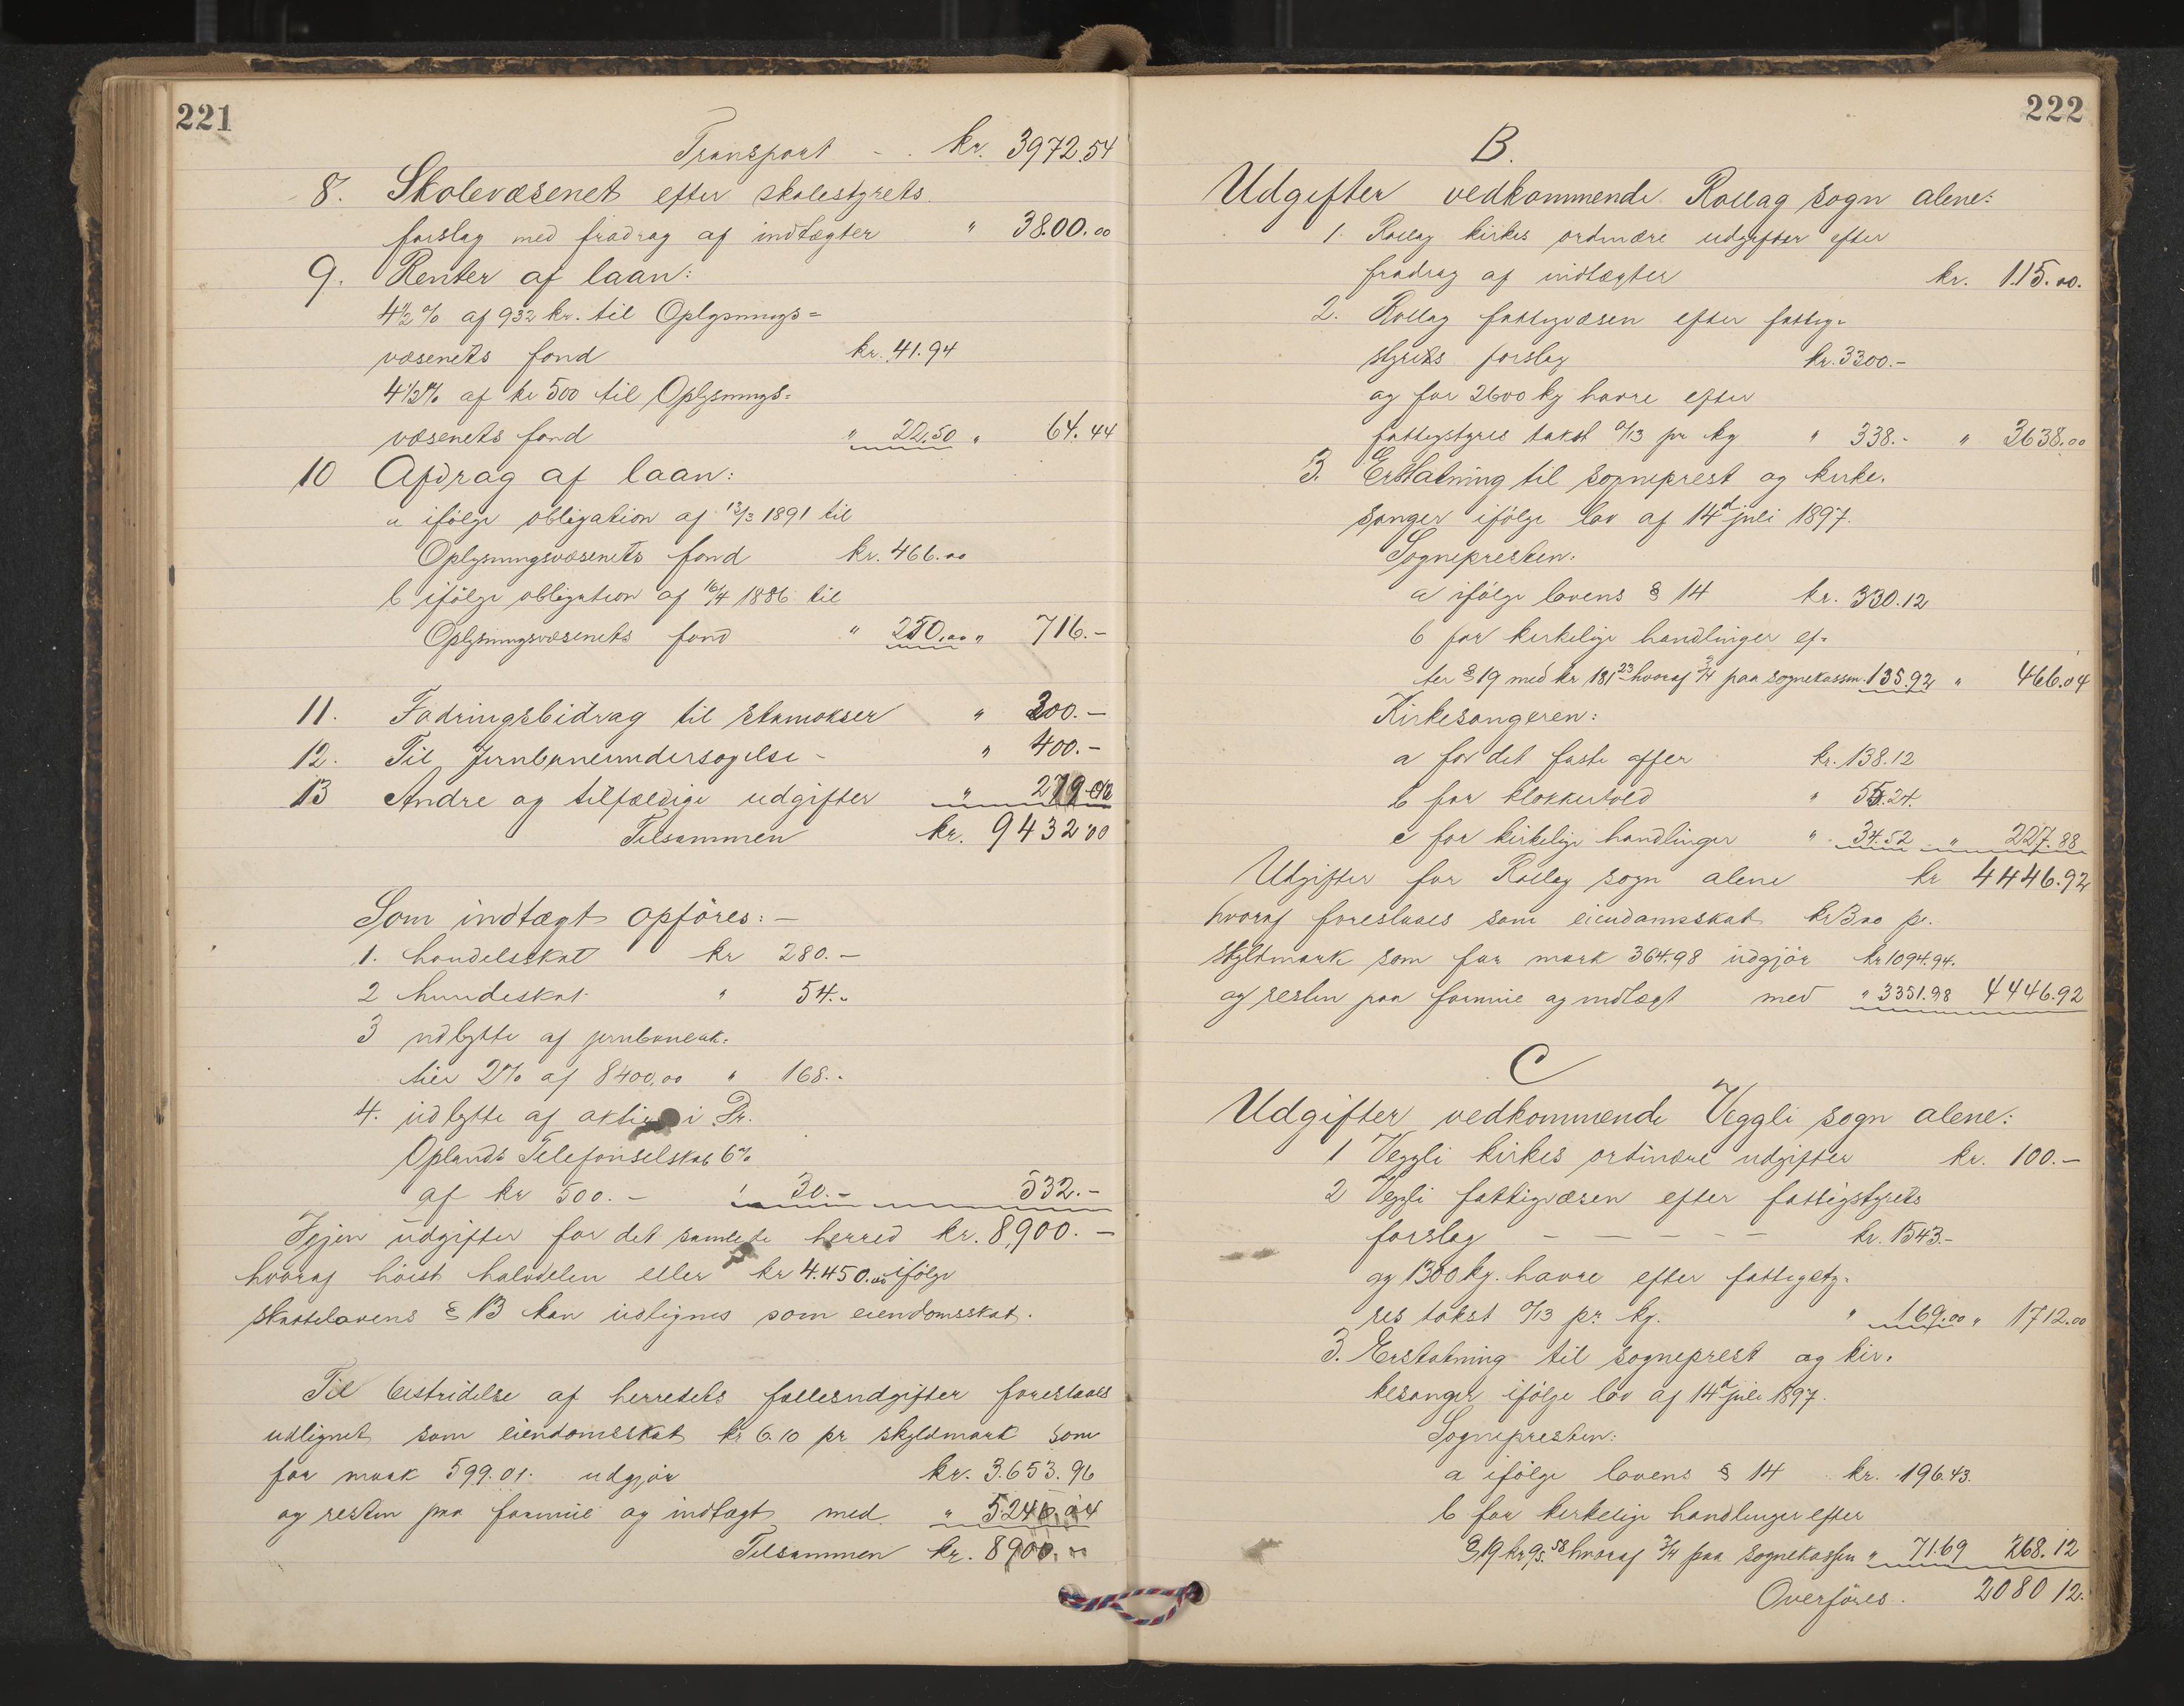 221
Transport - . kr. 3972.54
8. Skolevæsenet efter skolestyrets
forslag med fradrag af indtægter " 3800.00
9. Renter af laan:
4½ % af 932 kr. til Oplysnings=
væsenets fond kr. 41.94
4½% af kr 500 til Oplysnings=
væsenets fond " 22.50 " 64.44
10 Afdrag af laan:
a ifølge obligation af 13/3 1891 til
Oplysningsvæsenets fond kr. 466.00
b ifølge obligation af 16/4 1886 til
Oplysningsvæsenets fond " 250.00 " 716.-
11. Fodringsbidrag til stamokser " 200.-
12. Til Jernbaneundersøgelse - " 400.-
13 Andre og tilfældige udgifter " 279.02
Tilsammen kr. 9432.00
Som indtægt opföres: -
1. handelsskat kr 280.-
2 hundeskat " 54.-
3 udbytte af jernbaneak-
tier 2% af 8400.00 " 168.-
4. udbytte af aktier i Dr.
Oplands Telefonselskab 6%
af kr 500.- " 30.- 532.-
Igjen udgifter for det samlede herred kr. 8,900.-
hvoraf höist halvdelen eller kr 4.450.00 ifölge
skattelovens § 13 kan udlignes som eiendomsskat.
Til bestridelse af herredets fællesudgifter foreslaaes
udlignet som eiendomsskat kr 6.10 pr skyldmark som
for mark 599.01. udgjör kr. 3.653.96
og resten paa formue og indtægt med " 5246.04
Tilsammen kr. 8900.00
222
B.
Udgifter vedkommende Rollag sogn alene:
1. Rollag kirkes ordinære udgifter efter
fradrag af indtægter kr. 115.00.
2. Rollag fattigvæsen efter fattig-
styrets forslag kr. 3300.-
og for 2600 kg havre efter
fattigstyres takst 0/13 pr kg " 338.- " 3638.00
3. Erstatning til sogneprest og kirke-
sanger ifölge lov af 14d juli 1897.
Sognepresten:
a ifölge lovens § 14 kr. 330.12
b for kirkelige handlinger ef-
ter § 19 med kr 181 23 hvoraf 3/4 paa sognekassen 135.92 " 466.04
Kirkesangeren:
a for det faste offer kr. 138.12
b for klokkertold " 55.24.
c for kirkelige handlinger " 34.52 " 227.88
Udgifter for Rollag sogn alene kr 4446.92
hvoraf foreslaaes som eiendomsskat kr 3.00 pr.
skyldmark som for mark 364.98 udgjör kr 1094.94.
og resten paa formue og indtægt med " 3351.98 4446.92
C
Udgifter vedkommende Veggli sogn alene:
1 Veggli kirkes ordinære udgifter kr. 100.-
2 Veggli fattigvæsen efter fattigstyrets
forslag - - - - - kr. 1543.-
og 1300 kg. havre efter fattigsty-
res takst 0/13 pr. kg. " 169.00 " 1712.00
3. Erstatning til sogneprest og kir-
kesanger ifölge lov af 14d juli 1897.
Sognepresten:
a ifölge lovens § 14 kr. 196.43.
b for kirkelige handlinger efter
§ 19 kr 95.58 hvoraf 3/4 paa sognekassen " 71.69 268.12
Overföres. 2080 12.